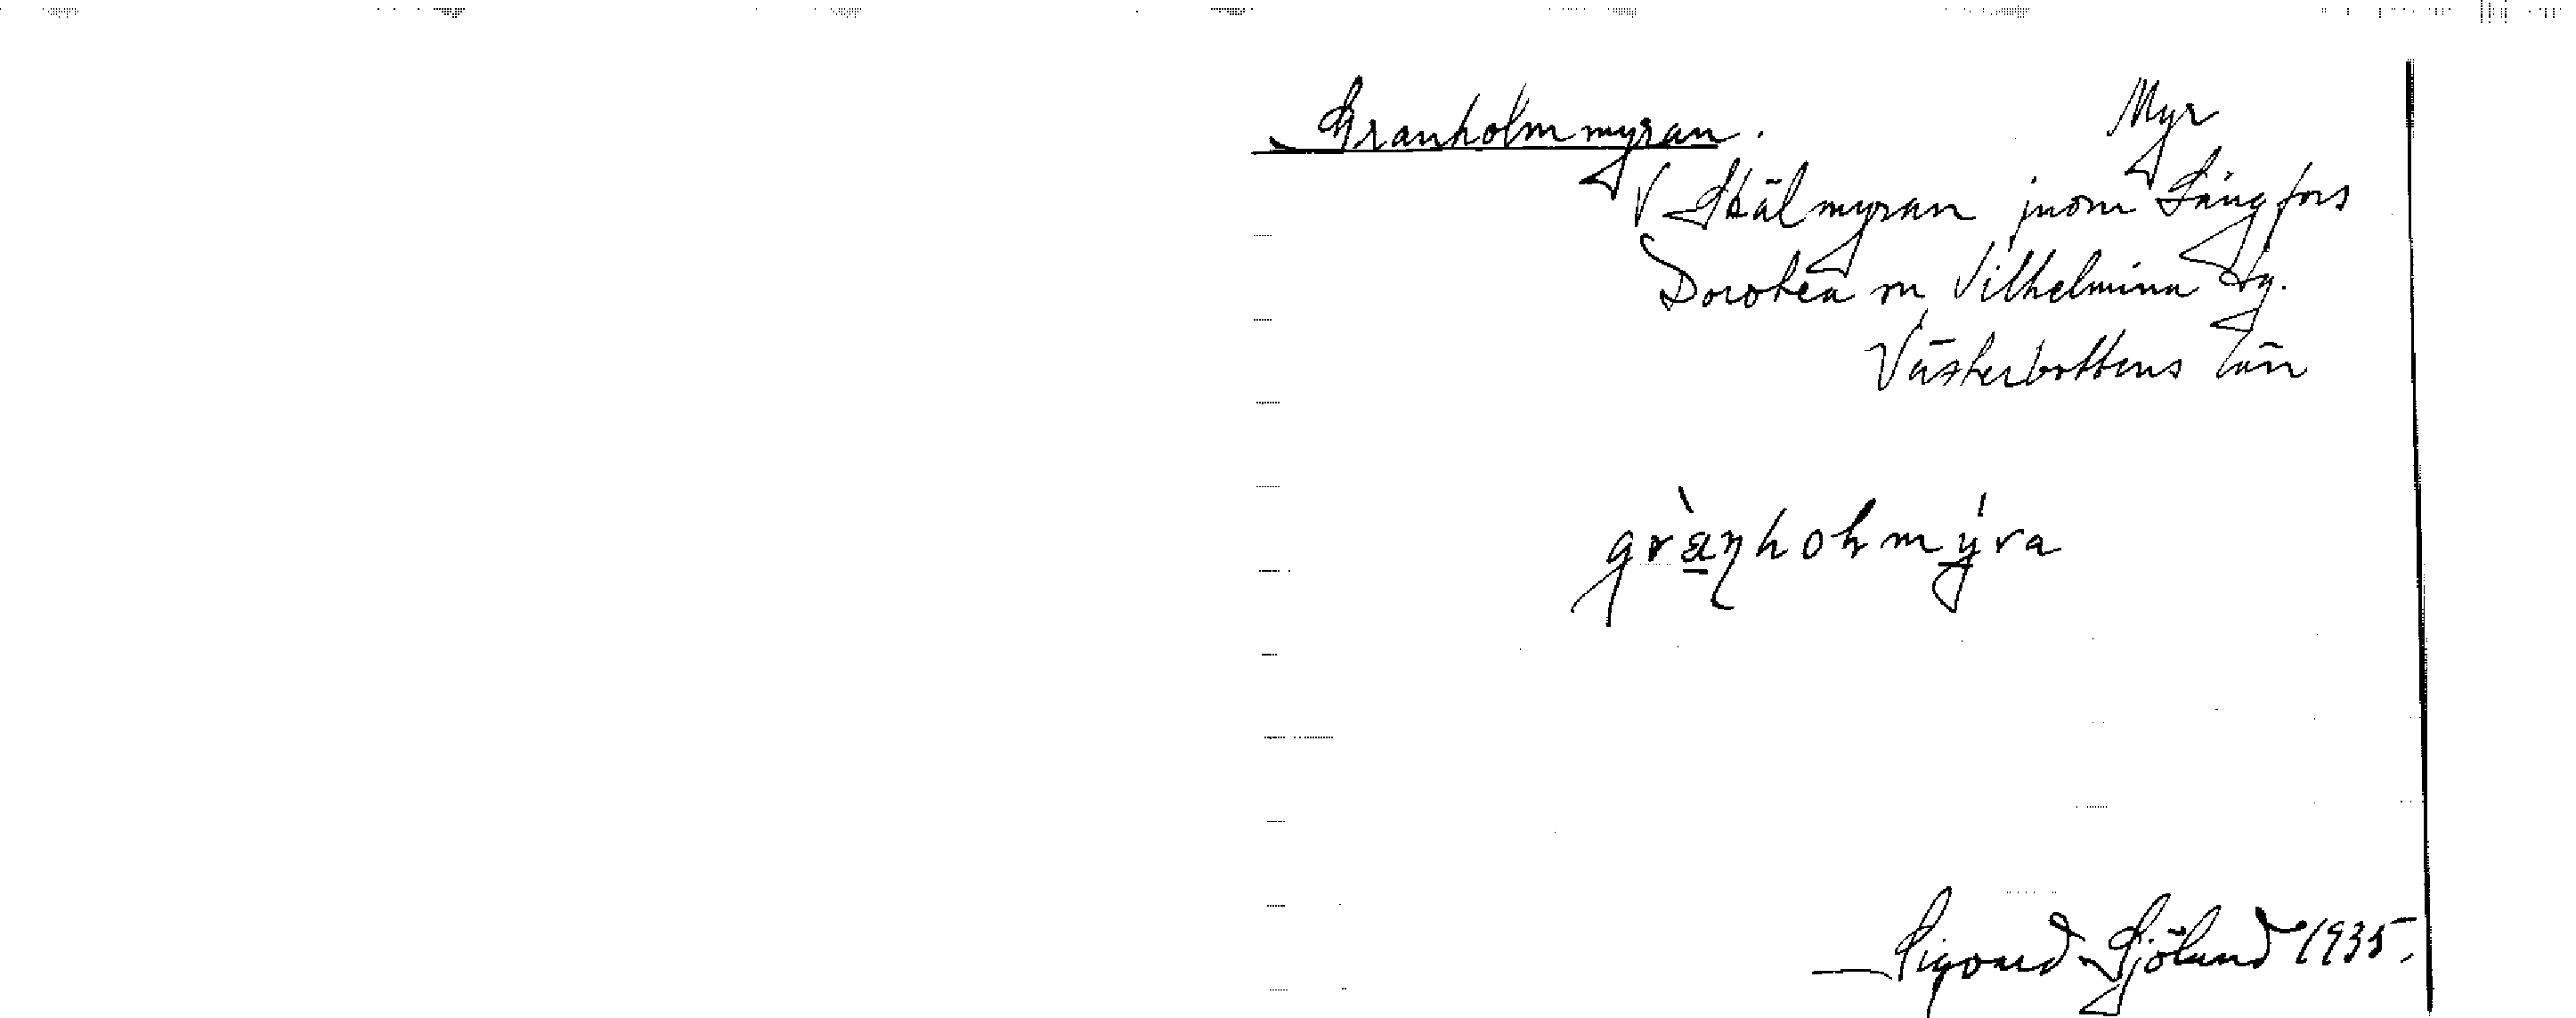 Granholmmyran. Myr
V Skälmyran inom Långfors
Dorotea sn Vilhelmina tg.
Västerbottens län
grànholmýra
Sigvard Sjölund 1935.